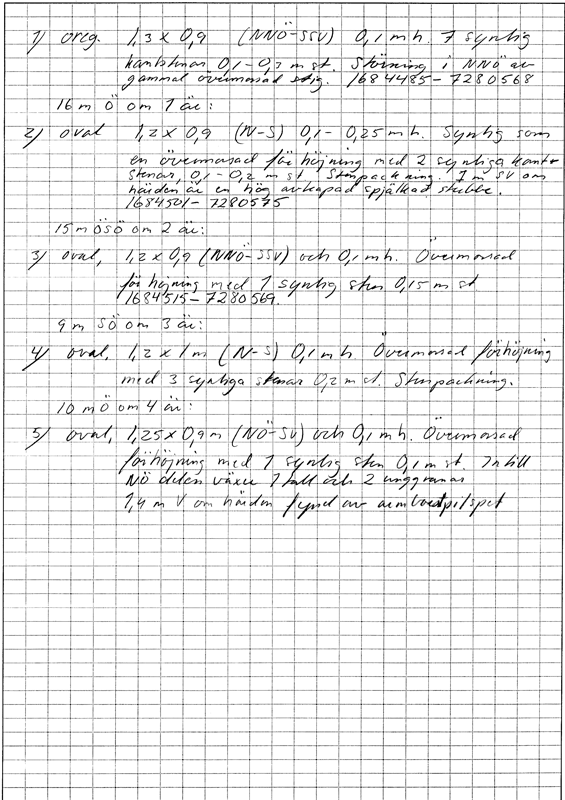 1) oreg. 1,3 x 0,9 (NNÖ-SSV) 0,1 m h. 7 synlig
kantstenar 0,1-0,3 m st. Störning i NNÖ av
gammal övermossad stig. 1684485-7280568
16 m Ö om 1 är:
2) oval 1,2 x 0,9 (N-S) 0,1-0,25 m h. Synlig som
en övermossad förhöjning med 2 synliga kant-
stenar, 0,1-0,2 m st. Stenpackning. 1 m SV om
härden är en hög avkapad spjälkad stubbe.
1684501-7280575
15 m ÖSÖ om 2 är:
3) oval, 1,2 x 0,9 (NNÖ-SSV) och 0,1 m h. Övermossad
förhöjning med 1 synlig sten 0,15 m st.
1684515-7280569.
9 m SÖ om 3 är:
4) oval, 1,2 x 1 m (N-S) 0,1 m h. Övermossad förhöjning
med 3 synliga stenar 0,2 m st. Stenpackning.
10 m Ö om 4 är:
5) oval, 1,25 x 0,9 m (NÖ-SV) och 0,1 m h. Övermossad
förhöjning med 1 synlig sten 0,1 m st. Intill
NÖ delen växer 1 tall och 2 unggranar
1,4 m V om härden fynd av armborstpilspet